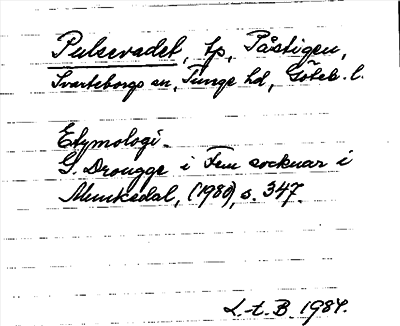 Pulsevadet, tp, Påstigen,
Svarteborgs sn, Tunge hd, Göteb. l.
Etymologi.
G. Drougge i Fem socknar i
Munkedal, (1980), s. 347.
L.t.B 1984.